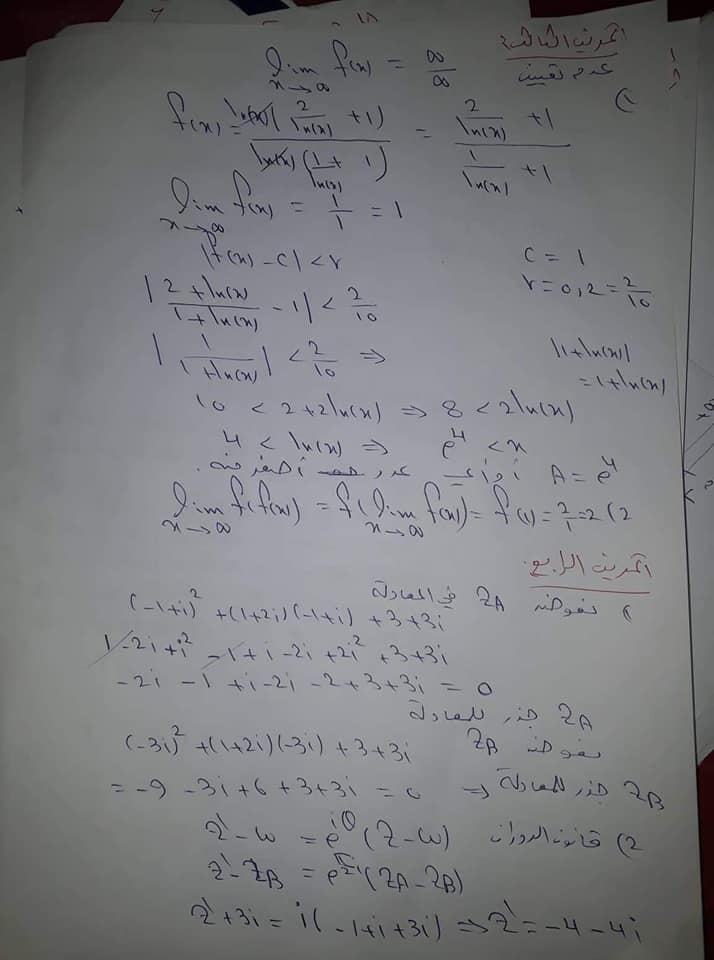 التمرين الثالث:
lim f(x) = ∞/∞ عدم تعيين
x→∞
1) f(x) = ln(x)(2/ln(x) + 1) / ln(x)(1/ln(x) + 1) = (2/ln(x) + 1) / (1/ln(x) + 1)
lim f(x) = 1/1 = 1
x→∞
|f(x) - c| < r    c = 1
r = 0,2 = 2/10
|(2+ln(x))/(1+ln(x)) - 1| < 2/10
|1/(1+ln(x))| < 2/10 ⇒    |1+ln(x)| = 1+ln(x)
10 < 2+2ln(x) ⇒ 8 < 2ln(x)
4 < ln(x) ⇒ e^4 < x
A = e^4 أو أي عدد
lim f(f(x)) = f(lim f(x)) = f(1) = 2/1 = 2 (2
x→∞    x→∞
التمرين الرابع:
1) نعوض Z_A في المعادلة
(-1+i)² + (1+2i)(-1+i) + 3+3i
1-2i+i² -1+i-2i+2i² +3+3i
-2i -1 +i-2i -2+3+3i = 0
Z_A جذر للمعادلة
نعوض Z_B
(-3i)² + (1+2i)(-3i) + 3+3i
= -9 -3i+6+3+3i = 0 ⇒ Z_B جذر للمعادلة
2) قانون الدوران z' - w = e^{iθ}(z-w)
z' - z_B = e^{π/2 i}(z_A - z_B)
z' + 3i = i(-1+i+3i) ⇒ z' = -4-4i